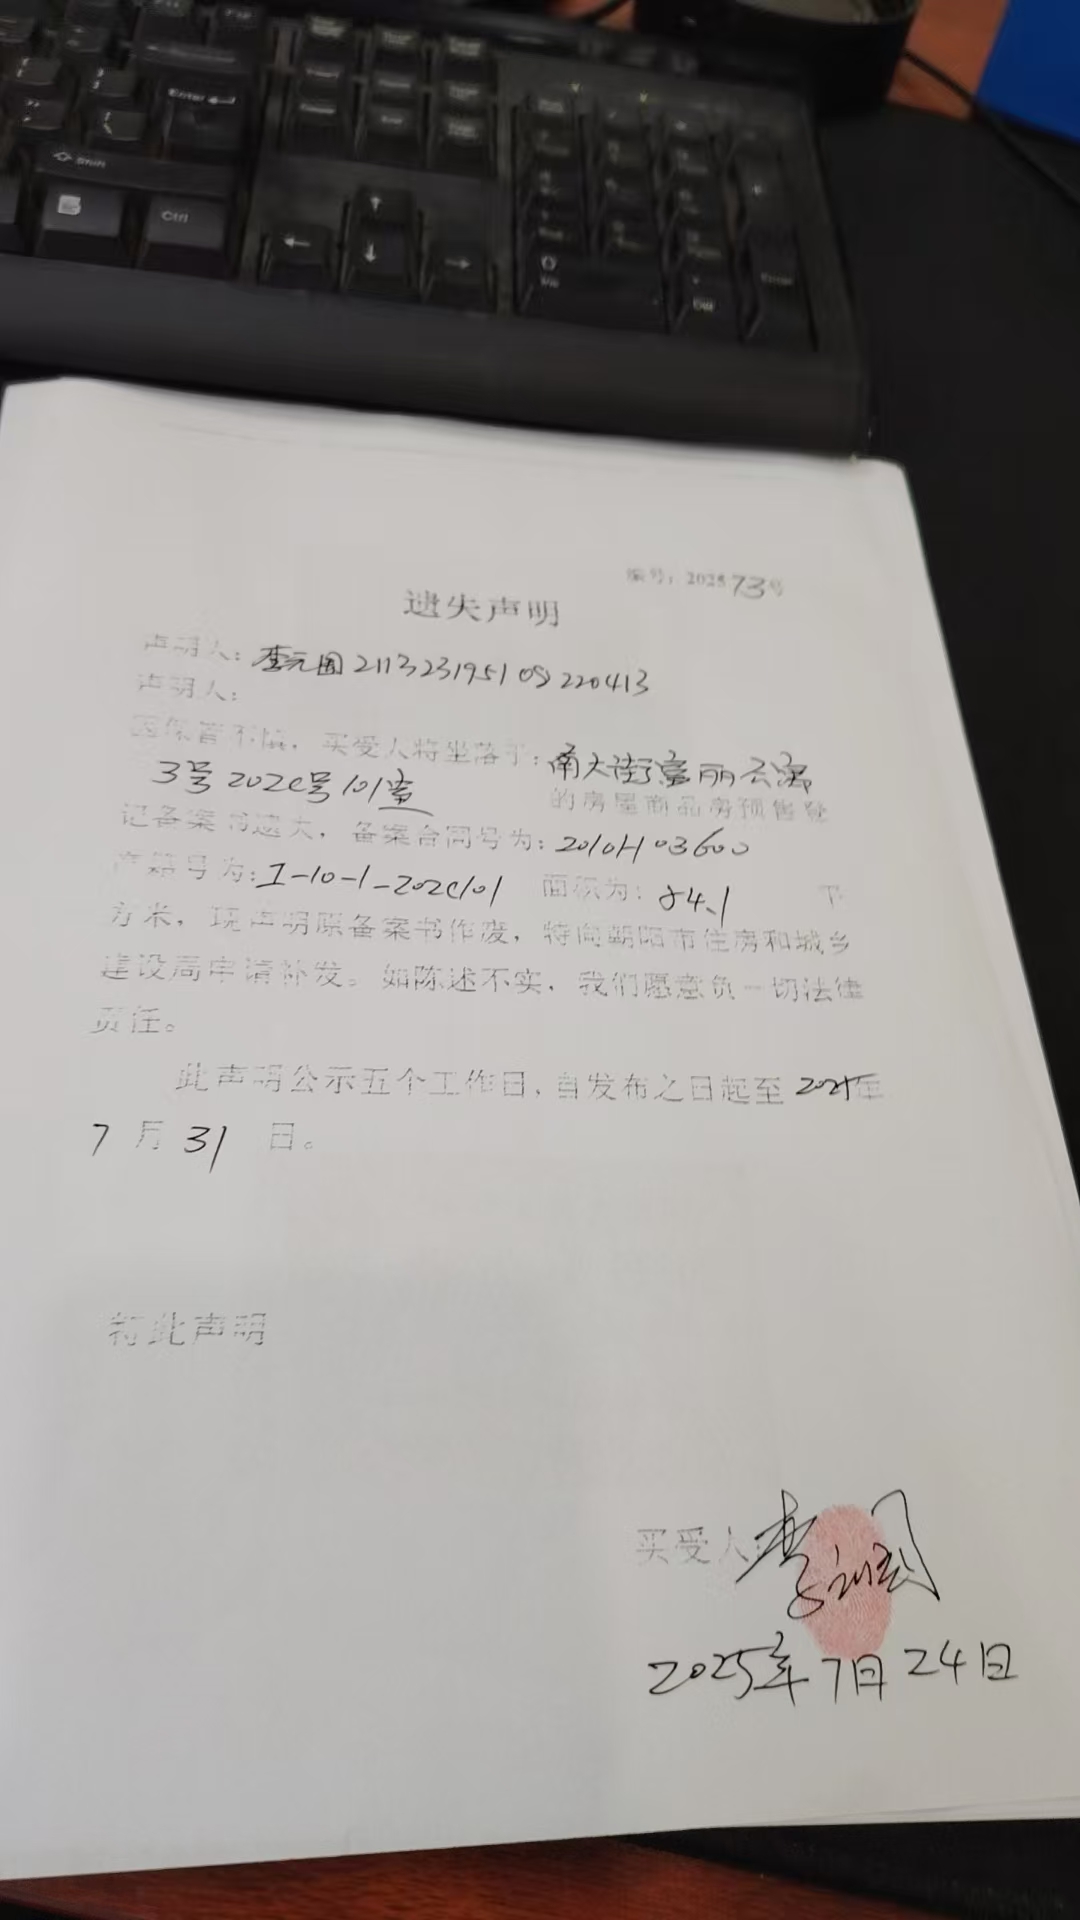 Enter
Shift
Ctrl
Enter
Del
编号：202573号
遗失声明
声明人：李元国211323195109220413
声明人：
因保管不慎，买受人将坐落于：南大街富丽云
3号202C号101室 的房屋商品房预售登
记备案书遗失，备案合同号为：2010H03600
产籍号为：I-10-1-202C101 面积为：84.1 平
方米，现声明原备案书作废，特向朝阳市住房和城乡
建设局申请补发。如陈述不实，我们愿意负一切法律
责任。
此声明公示五个工作日，自发布之日起至2025年
7月31日。
特此声明
买受人：李元国
2025年7月24日